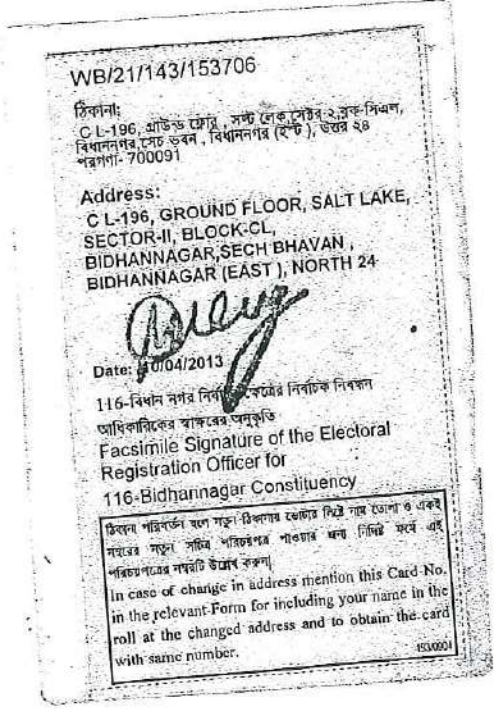 WB/21/143/153706
ঠিকানা:
C L-196, গ্রাউন্ড ফ্লোর , সল্ট লেক,সেক্টর-২,ব্লক-সিএল,
বিধাননগর,সেচ ভবন , বিধাননগর (ইস্ট ), উত্তর ২৪
পরগণা- 700091
Address:
C L-196, GROUND FLOOR, SALT LAKE,
SECTOR-II, BLOCK-CL,
BIDHANNAGAR,SECH BHAVAN ,
BIDHANNAGAR (EAST ), NORTH 24
Date: 10/04/2013
116-বিধান নগর নির্বাচন নিবন্ধন
আধিকারিকের স্বাক্ষরের অনুকৃতি
Facsimile Signature of the Electoral
Registration Officer for
116-Bidhannagar Constituency
ঠিকানা পরিবর্তন হলে নতুন ঠিকানায় ভোটার লিষ্টে নাম তোলা ও একই
নম্বরের নতুন সচিত্র পরিচয়পত্র পাওয়ার জন্য নির্দিষ্ট ফর্মে এই
পরিচয়পত্রের নম্বরটি উল্লেখ করুন।
In case of change in address mention this Card No.
in the relevant Form for including your name in the
roll at the changed address and to obtain the card
with same number.